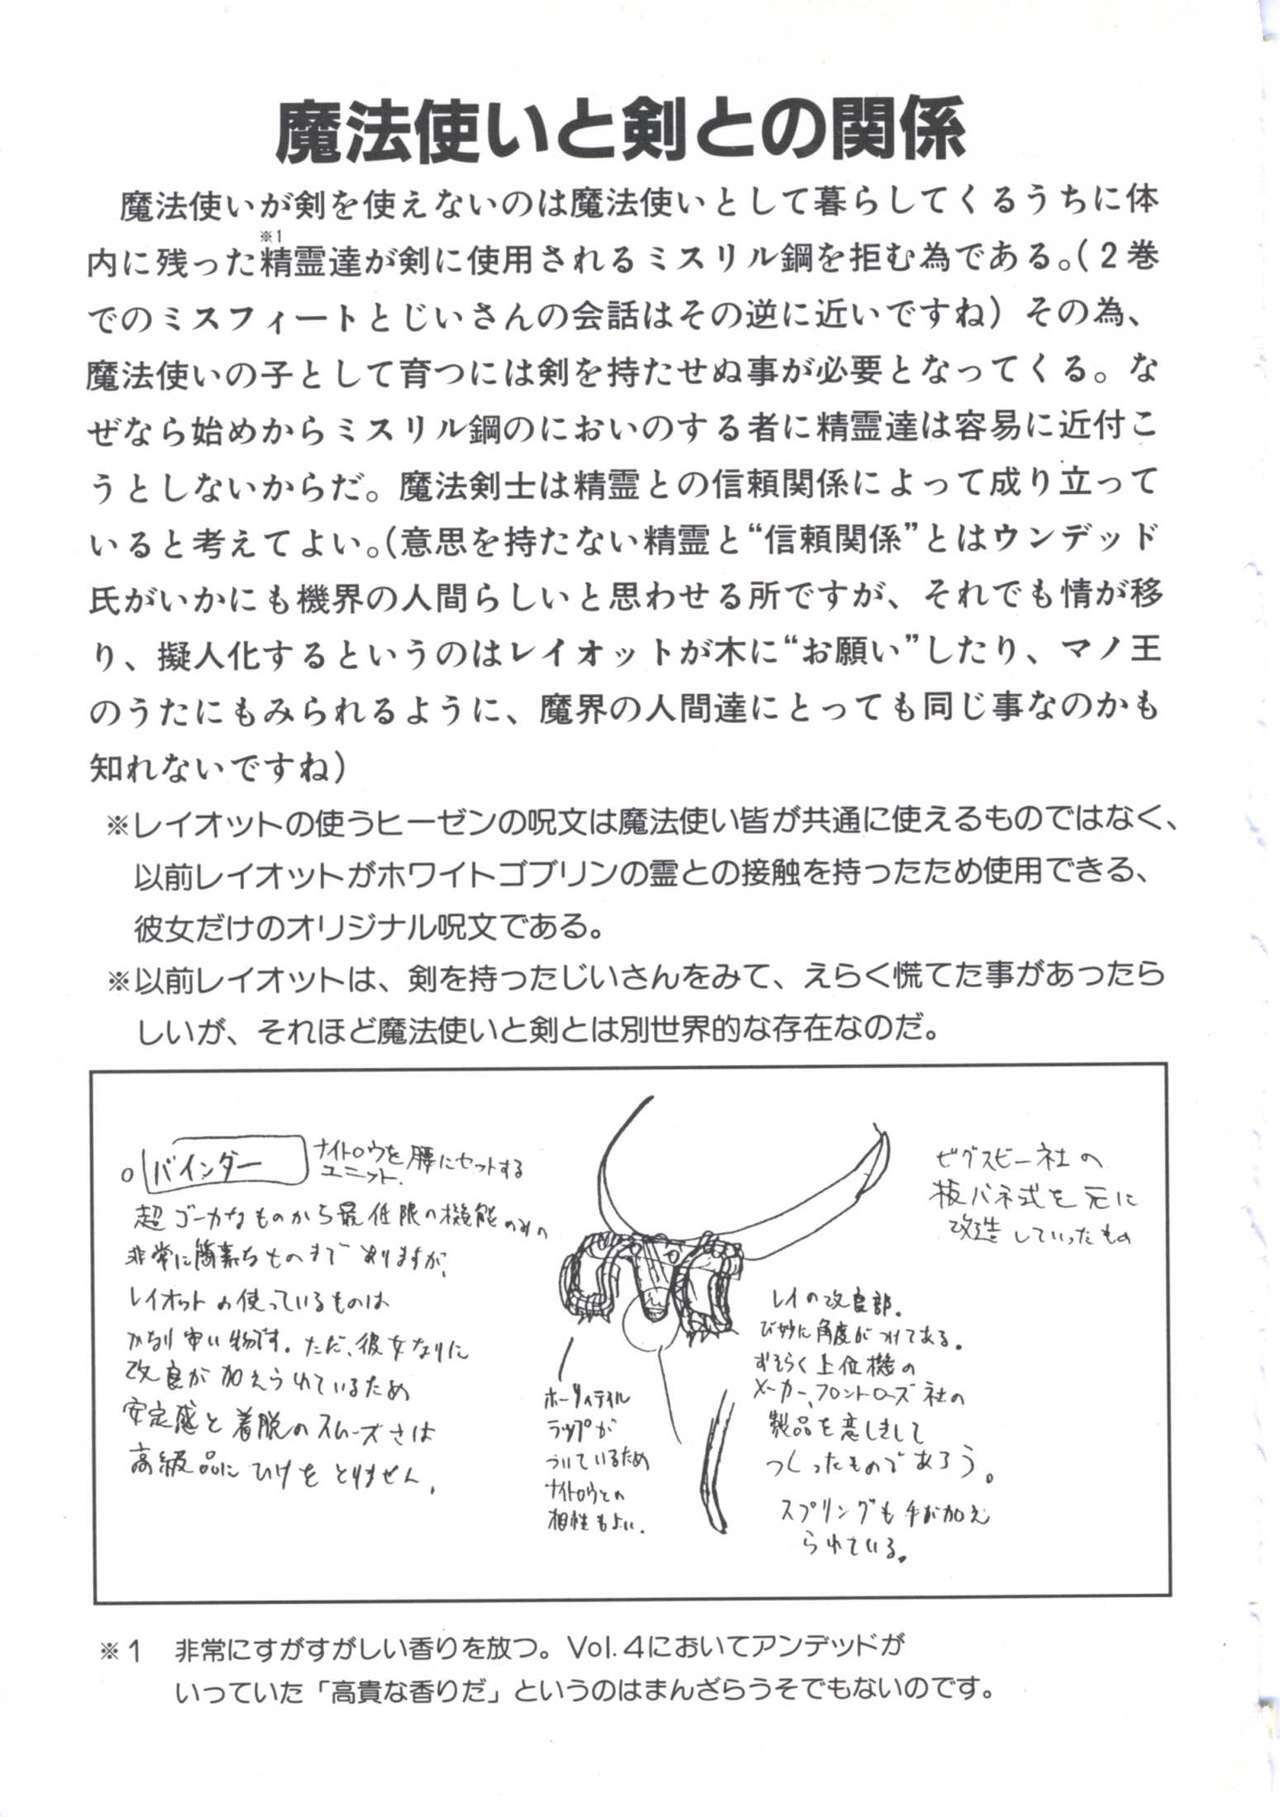 魔法使いと剣との関係
魔法使いが剣を使えないのは魔法使いとして暮らしてくるうちに体
※1
内に残った精霊達が剣に使用されるミスリル鋼を拒む為である。(2巻
でのミスフィートとじいさんの会話はその逆に近いですね)その為、
魔法使いの子として育つには剣を持たせぬ事が必要となってくる。な
ぜなら始めからミスリル鋼のにおいのする者に精霊達は容易に近付こ
うとしないからだ。魔法剣士は精霊との信頼関係によって成り立って
いると考えてよい。(意思を持たない精霊と“信頼関係”とはウンデッド
氏がいかにも機界の人間らしいと思わせる所ですが、それでも情が移
り、擬人化するというのはレイオットが木に“お願い”したり、マノ王
のうたにもみられるように、魔界の人間達にとっても同じ事なのかも
知れないですね)
※レイオットの使うヒーゼンの呪文は魔法使い皆が共通に使えるものではなく、
以前レイオットがホワイトゴブリンの霊との接触を持ったため使用できる、
彼女だけのオリジナル呪文である。
※以前レイオットは、剣を持ったじいさんをみて、えらく慌てた事があったら
しいが、それほど魔法使いと剣とは別世界的な存在なのだ。
○バインダー
ナイトロウを腰にセットする
ユニット.
超ゴーカなものから最低限の機能のみの
非常に簡素なものまでありますが、
レイオットの使っているものは
かなり古い物です。ただ、彼女なりに
改良が加えられているため
安定感と着脱のスムーズさは
高級品にひけをとりません.
ビグスビー社の
板バネ式を元に
改造していったもの
レイの改良部.
び妙に角度がつけてある.
おそらく上位機の
メーカー、フロントローズ社の
製品を意しきして
つくったものであろう。
スプリングも手が加え
られている。
ラップが
ついているため
ナイトロウとの
相性もよい.
※1　非常にすがすがしい香りを放つ。Vol.4においてアンデッドが
いっていた「高貴な香りだ」というのはまんざらうそでもないのです。